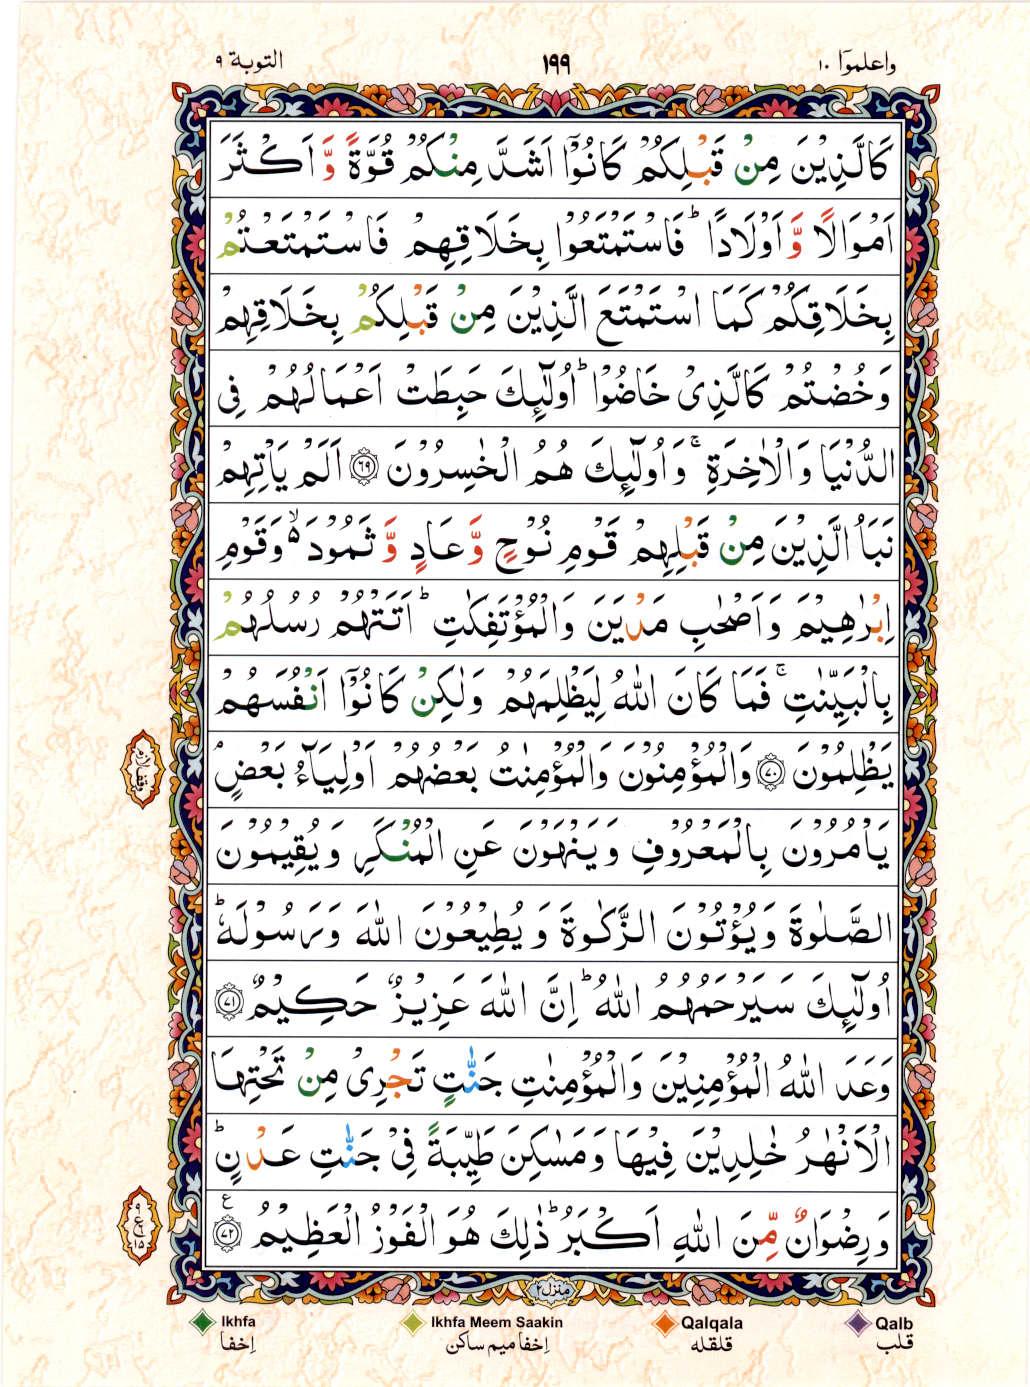 التوبة ٩
١٩٩
واعلموٓا ١٠
كَالَّذِيْنَ مِنْ قَبْلِكُمْ كَانُوْٓا اَشَدَّ مِنْكُمْ قُوَّةً وَّ اَكْثَرَ
اَمْوَالًا وَّ اَوْلَادًا ؕ فَاسْتَمْتَعُوْا بِخَلَاقِهِمْ فَاسْتَمْتَعْتُمْ
بِخَلَاقِكُمْ كَمَا اسْتَمْتَعَ الَّذِيْنَ مِنْ قَبْلِكُمْ بِخَلَاقِهِمْ
وَخُضْتُمْ كَالَّذِيْ خَاضُوْا ؕ اُولٰٓئِكَ حَبِطَتْ اَعْمَالُهُمْ فِي
الدُّنْيَا وَالْاٰخِرَةِ ۚ وَ اُولٰٓئِكَ هُمُ الْخٰسِرُوْنَ ﴿٦٩﴾ اَلَمْ يَاْتِهِمْ
نَبَاُ الَّذِيْنَ مِنْ قَبْلِهِمْ قَوْمِ نُوْحٍ وَّ عَادٍ وَّ ثَمُوْدَ ۙ۬ وَقَوْمِ
اِبْرٰهِيْمَ وَ اَصْحٰبِ مَدْيَنَ وَالْمُؤْتَفِكٰتِ ؕ اَتَتْهُمْ رُسُلُهُمْ
بِالْبَيِّنٰتِ ۚ فَمَا كَانَ اللّٰهُ لِيَظْلِمَهُمْ وَلٰكِنْ كَانُوْٓا اَنْفُسَهُمْ
يَظْلِمُوْنَ ﴿٧٠﴾ وَالْمُؤْمِنُوْنَ وَالْمُؤْمِنٰتُ بَعْضُهُمْ اَوْلِيَآءُ بَعْضٍ ۘ
يَاْمُرُوْنَ بِالْمَعْرُوْفِ وَيَنْهَوْنَ عَنِ الْمُنْكَرِ وَيُقِيْمُوْنَ
الصَّلٰوةَ وَيُؤْتُوْنَ الزَّكٰوةَ وَيُطِيْعُوْنَ اللّٰهَ وَرَسُوْلَهٗ ؕ
اُولٰٓئِكَ سَيَرْحَمُهُمُ اللّٰهُ ؕ اِنَّ اللّٰهَ عَزِيْزٌ حَكِيْمٌ ﴿٧١﴾
وَعَدَ اللّٰهُ الْمُؤْمِنِيْنَ وَالْمُؤْمِنٰتِ جَنّٰتٍ تَجْرِيْ مِنْ تَحْتِهَا
الْاَنْهٰرُ خٰلِدِيْنَ فِيْهَا وَمَسٰكِنَ طَيِّبَةً فِيْ جَنّٰتِ عَدْنٍ ؕ
وَرِضْوَانٌ مِّنَ اللّٰهِ اَكْبَرُ ؕ ذٰلِكَ هُوَ الْفَوْزُ الْعَظِيْمُ ﴿٧٢﴾ ع
ع ٩ ١٥
منزل٢
Ikhfa
اِخفا
Ikhfa Meem Saakin
اِخفا ميم ساكن
Qalqala
قلقله
Qalb
قلب